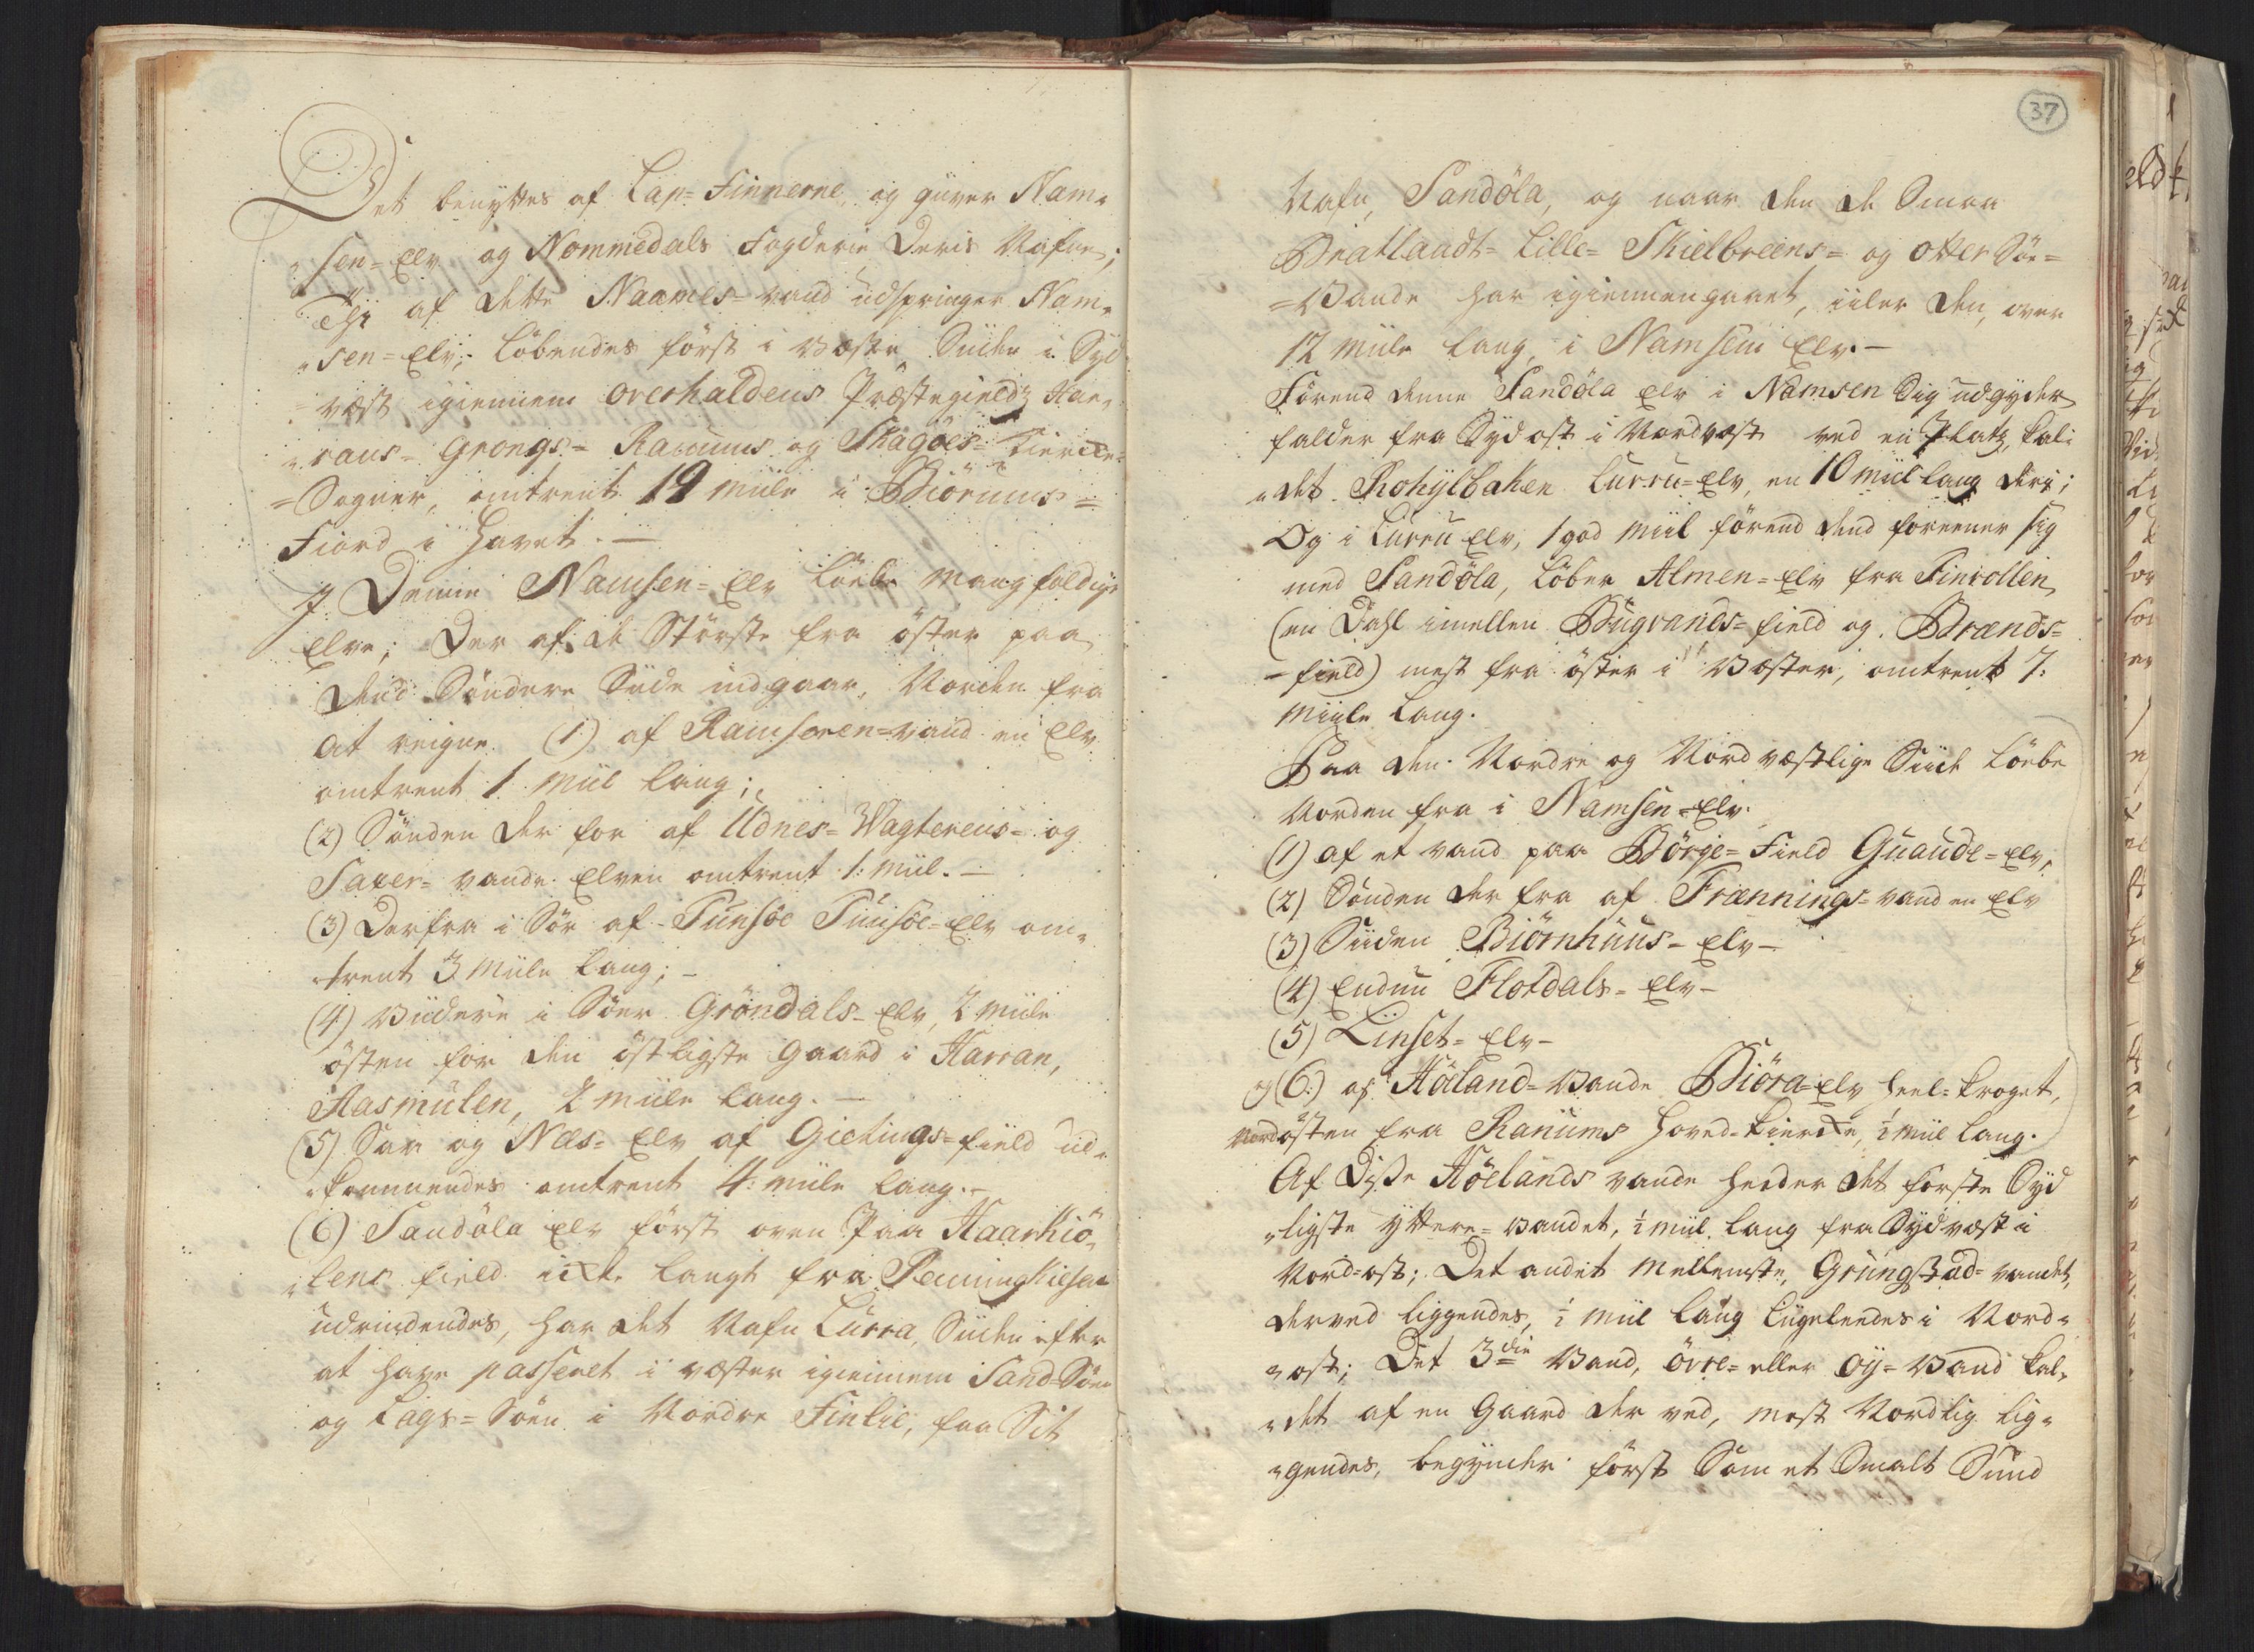 Det benyttes af Lap-Finnerne, og giver Nam-
sen-Elv og Nommedals Fogderie Deris Nafne;
Thi af dette Naames-vand udspringer Nam-
sen-Elv, Löbendes först i Væste, Siiden i Syd
væst igiennem Overhaldens Præstegields Har-
rans- Grongs- Ranums og Skages- Kiercke-
Sogner, omtrent 19 Miile i Biörums-
Fiord i Havet. —
I Denne Namsen-Elv Löebe mangfoldige
Elve; Der af de Störste fra öster paa
dend Söndere Siide indgaar, Norden fra
at reigne. (1) af Ramseren-vand en Elv
omtrent 1 Miil lang;
(2) Sönden der for af Udnes- Wagterens- og
Saxer- vande Elven omtrent 1: Miil. —
(3) Derfra i Sör af Tunsöe Tunsöe-Elv om-
trent 3 Miile lang; —
(4) Viidere i Söer Gröndals-Elv, 2 Miile
östen for den östligste Gaard i Harran,
Aasmulen, 2 Miile lang. —
(5) Saa og Nees-Elv af Gietings-field ud-
kommendes omtrent 4: Miile lang. —
(6) Sandöla Elv först oven Paa Haarkiö-
lens field icke langt fra Penningkiesen
udrindendes, har det Nafn Lurra, Siiden efter
at have passeret i væster igiennem Sand-Söe
og Lags-Söen i Nordre Finlie, faa Sit
37
Nafn, Sandöla, og naar den de Smaa
Bratlandt- Lille- Skielbreens- og otter Söe-
Vande har igiennengaaet, iiler den, over
12 Miile lang, i Namsen Elv. —
Förend denne Sandöla Elv i Namsen Sig udgyder
falder fra Sydost i Nordvæst ved en Platz, kal-
det Rohylbaken Lurru-Elv, en 10 Miil lang deri;
Og i Lurru Elv, 1 god Miil förend dend foreener sig
med Sandöla, Löber Almen-Elv fra Finvollen,
(en Dahl imellen Bugvands-field og Brands-
field) mest fra öster i Væster, omtrent 7:
Miile lang.
Paa den Nordre og Nordvæstlige Siide Löebe
Norden fra i Namsen-Elv.
(1) af et vand paa Börje-Field Guaude-Elv,
(2) Sönden der fra af Frænnings-vand en Elv
(3) Siiden Biörnhuus-Elv —
(4) Endnu Flotdals-Elv —
(5) Linset-Elv —
og (6.) af Höeland-Vande Biöra-Elv heel-kroget,
Nordösten fra Ranums Hoved-kiercke, ½ Miil lang.
Af Disse Höelands vande heeder det förste Syd
ligste Yttere-Vandet, ½ Miil lang fra Sydvæst i
Nord-ost; Det andet Mellemste, Grungstad-vandet,
derved liggendes, ½ Miil lang Liigeleedes i Nord-
ost; Det 3die Vand, övre- eller Oÿ-Vand kal-
det af en Gaard der ved, mest Nordlig lig-
gendes, begynder först Som et Smalt Sund